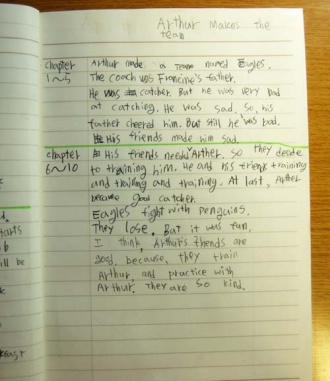 Arthur Makes the
team
chapter
1~5
Arthur made a team named Eagles.
The coach was Francine's father.
He was catcher. But he was very bad
at catching. He was sad. So, his
father cheered him. But still he was bad.
His friends made him sad.
chapter
6~10
His friends need Arther. So they deside
to training him. He and his friends training
and training and training. At last, Arther
became good catcher.
Eagles fight with penguins.
They lose. But it was fun.
I think, Arthur's friends are
good. because, they train
Arthur, and practice with
Arthur. They are so kind.